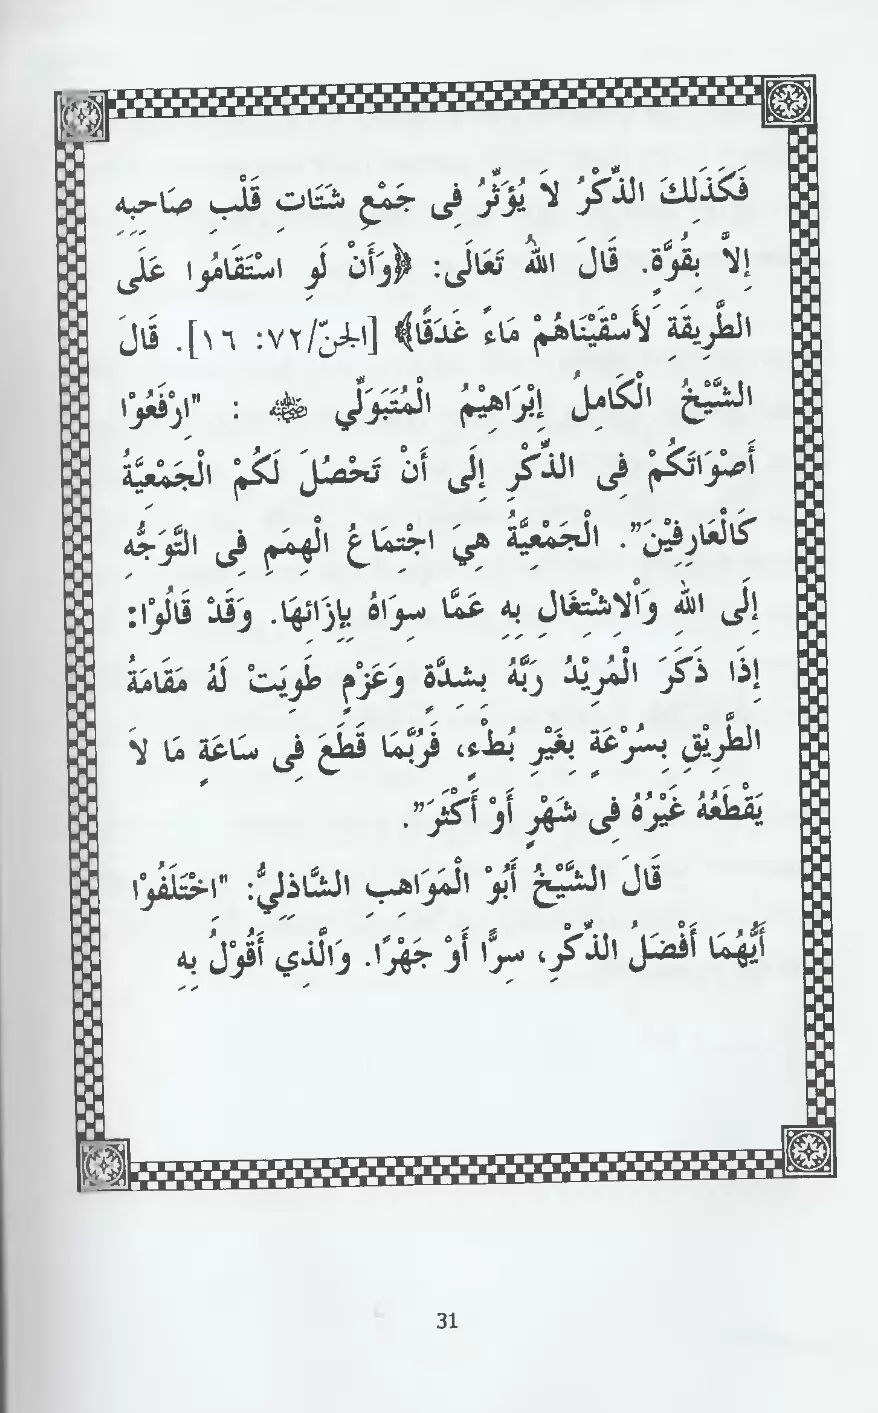 فَكَذَلِكَ الذِّكْرُ لاَ يُؤَثِّرُ فِى جَمْعِ شَتَاتِ قَلْبِ صَاحِبِهِ
إِلاَّ بِقُوَّةٍ. قَالَ اللهُ تَعَالَى: ﴿وَأَنْ لَوِ اسْتَقَامُوا عَلَى
الطَّرِيقَةِ لَأَسْقَيْنَاهُمْ مَاءً غَدَقًا﴾ [الجنّ/٧٢: ١٦]. قَالَ
الشَّيْخُ الْكَامِلُ إِبْرَاهِيْمُ الْمُتَبَوِّلِي ﷺ : "ارْفَعُوْا
أَصْوَاتَكُمْ فِى الذِّكْرِ إِلَى أَنْ تَحْصُلَ لَكُمْ الْجَمْعِيَّةُ
كَالْعَارِفِيْنَ”. الْجَمْعِيَّةُ هِيَ اجْتِمَاعُ الْهِمَمِ فِى التَّوَجُّهِ
إِلَى اللهِ وَاْلاِشْتِغَالِ بِهِ عَمَّا سِوَاهُ بِإِزَائِهَا. وَقَدْ قَالُوْا:
إِذَا ذَكَرَ الْمُرِيْدُ رَبَّهُ بِشِدَّةٍ وَعَزْمٍ طُوِيَتْ لَهُ مَقَامَةُ
الطَّرِيْقِ بِسُرْعَةٍ بِغَيْرِ بُطْءٍ، فَرُبَّمَا قَطَعَ فِى سَاعَةٍ مَا لاَ
يَقْطَعُهُ غَيْرُهُ فِى شَهْرٍ أَوْ أَكْثَرَ”.
قَالَ الشَّيْخُ أَبُوْ الْمَوَاهِبِ الشَّاذِلِيُّ: "اخْتَلَفُوْا
أَيُّهُمَا أَفْضَلُ الذِّكْرِ، سِرًّا أَوْ جَهْرًا. وَالَّذِي أَقُوْلُ بِهِ
31